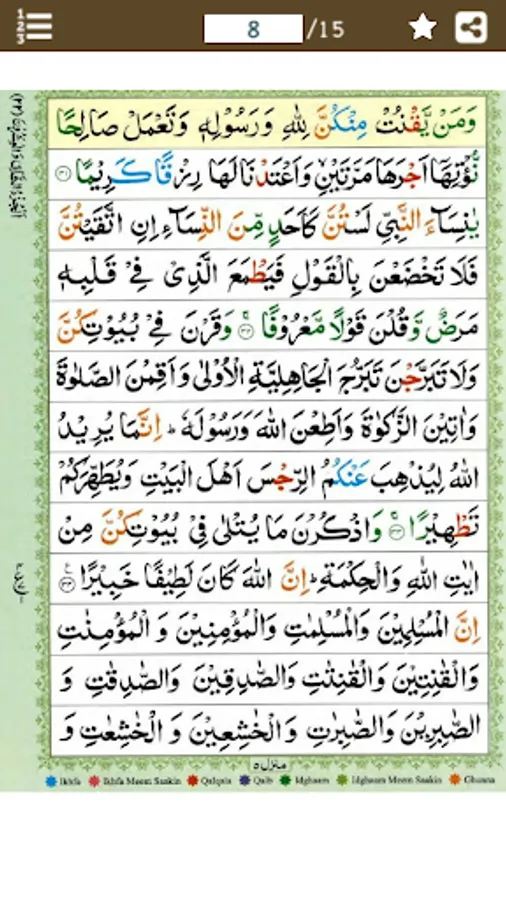 8 /15
وَمَنْ يَّقْنُتْ مِنْكُنَّ لِلّٰهِ وَرَسُوْلِهٖ وَتَعْمَلْ صَالِحًا
نُّؤْتِهَاۤ اَجْرَهَا مَرَّتَيْنِ وَاَعْتَدْنَا لَهَا رِزْقًا كَرِيْمًا ۝۳۱
يٰنِسَآءَ النَّبِيِّ لَسْتُنَّ كَاَحَدٍ مِّنَ النِّسَآءِ اِنِ اتَّقَيْتُنَّ
فَلَا تَخْضَعْنَ بِالْقَوْلِ فَيَطْمَعَ الَّذِيْ فِيْ قَلْبِهٖ
مَرَضٌ وَّقُلْنَ قَوْلًا مَّعْرُوْفًا ۝۳۲ وَقَرْنَ فِيْ بُيُوْتِكُنَّ
وَلَا تَبَرَّجْنَ تَبَرُّجَ الْجَاهِلِيَّةِ الْاُوْلٰى وَاَقِمْنَ الصَّلٰوةَ
وَاٰتِيْنَ الزَّكٰوةَ وَاَطِعْنَ اللّٰهَ وَرَسُوْلَهٗ ؕ اِنَّمَا يُرِيْدُ
اللّٰهُ لِيُذْهِبَ عَنْكُمُ الرِّجْسَ اَهْلَ الْبَيْتِ وَيُطَهِّرَكُمْ
تَطْهِيْرًا ۝۳۳ وَاذْكُرْنَ مَا يُتْلٰى فِيْ بُيُوْتِكُنَّ مِنْ
اٰيٰتِ اللّٰهِ وَالْحِكْمَةِ ؕ اِنَّ اللّٰهَ كَانَ لَطِيْفًا خَبِيْرًا ۝۳۴
اِنَّ الْمُسْلِمِيْنَ وَالْمُسْلِمٰتِ وَالْمُؤْمِنِيْنَ وَ الْمُؤْمِنٰتِ
وَالْقٰنِتِيْنَ وَالْقٰنِتٰتِ وَالصّٰدِقِيْنَ وَالصّٰدِقٰتِ وَ
الصّٰبِرِيْنَ وَالصّٰبِرٰتِ وَالْخٰشِعِيْنَ وَ الْخٰشِعٰتِ وَ
منزل ۵
Ikhfa Ikhfa Meem Saakin Qalqala Qalb Idghaam Idghaam Meem Saakin Ghunna